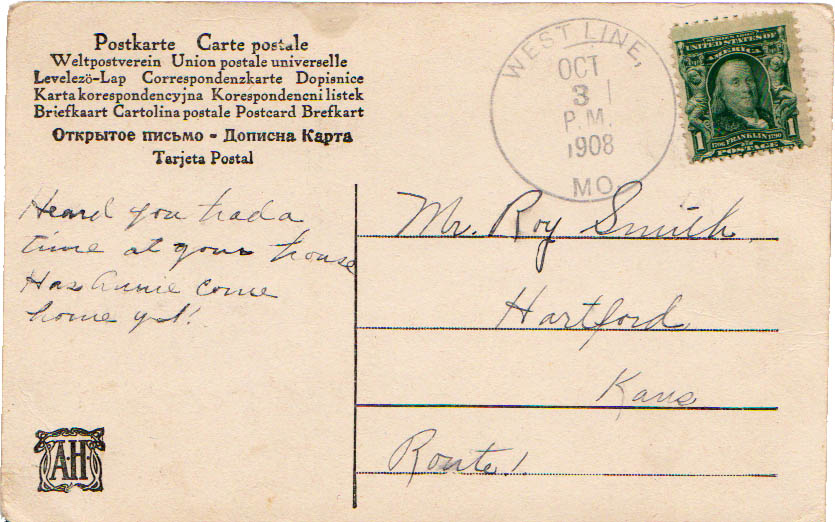 Postkarte Carte postale
Weltpostverein Union postale universelle
Levelezö-Lap Correspondenzkarte Dopisnice
Karta korespondencyjna Korespondencni listek
Briefkaart Cartolina postale Postcard Brefkart
Открытое письмо - Дописна Карта
Tarjeta Postal
WEST LINE,
OCT
31
P.M.
1908
MO
UNITED STATES OF
AMERICA
1 1
1706 FRANKLIN 1790
POSTAGE
Heard you had a
time at your house
Has Annie come
home yet!
Mr. Roy Smith
Hartford
Kans
Route 1.
A.H.